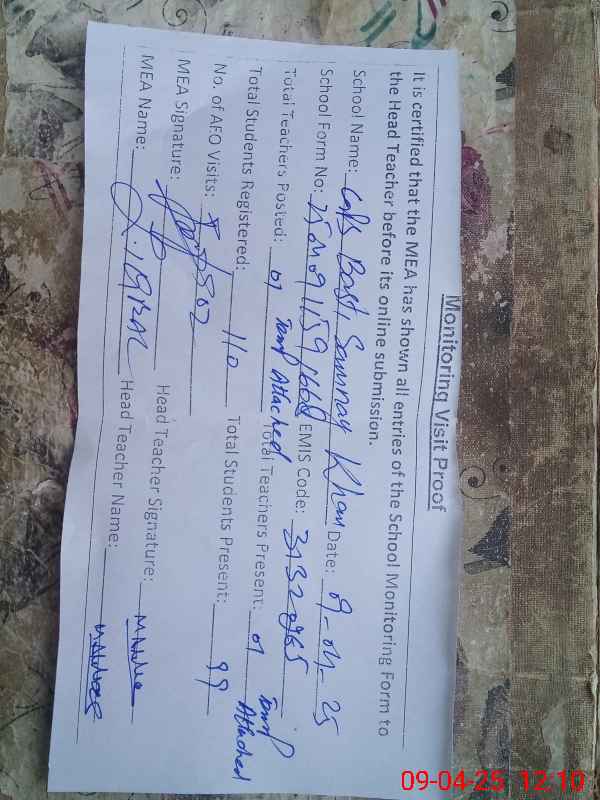 Monitoring Visit Proof
It is certified that the MEA has shown all entries of the School Monitoring Form to
the Head Teacher before its online submission.
School Name: GGPS Basti Sawnay Khan Date: 09-04-25
School Form No: EMIS Code: 31320965
Total Teachers Posted: 01 Temp Attached Total Teachers Present: 01 Temp Attached
Total Students Registered: 110 Total Students Present: 99
No. of AEO Visits:
MEA Signature: Head Teacher Signature:
MEA Name: Head Teacher Name:
09-04-25 12:10